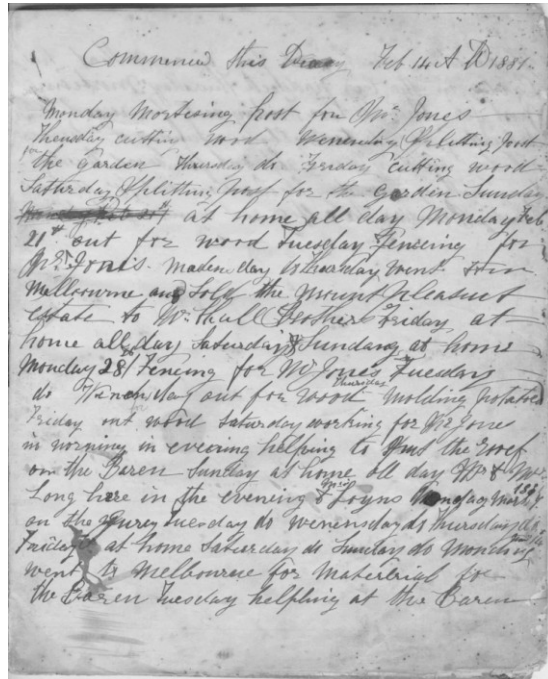 Commenced this Deary Feb 14 A D 1881
Monday Mortising post for Mr Jones
Thuesday cuttin wood Wenenday Splitting Post
for the garden Thursdia do Friday cutting wood
Saturday Splitting Post for the garden Sunday
at home all day Monday Feb
21st out for wood Tuesday Fencing for
Mr Jones. day Thursday went
Melbourne and Sold the mount pleasant
Estate to Mr thall Brother Friday at
home all day Saturday & Sunday at home
Monday 28th Fencing for Mr Jones Tuesday
do day out for wood Thursday Molding potatoes
Friday out wood Saturday working for Mr Jone
in morning in evening helping to put the roof
on the Baren Sunday at home all day Mr & Mrs
Long here in the evening & Mrs Joyns Monday March 7
on the jurey tuesday do wenensday do Thursday do
Friday at home Saturday do Sunday do Monday
went to Melbourne for Matererial for
the Baren Tuesday helpling at the Baren